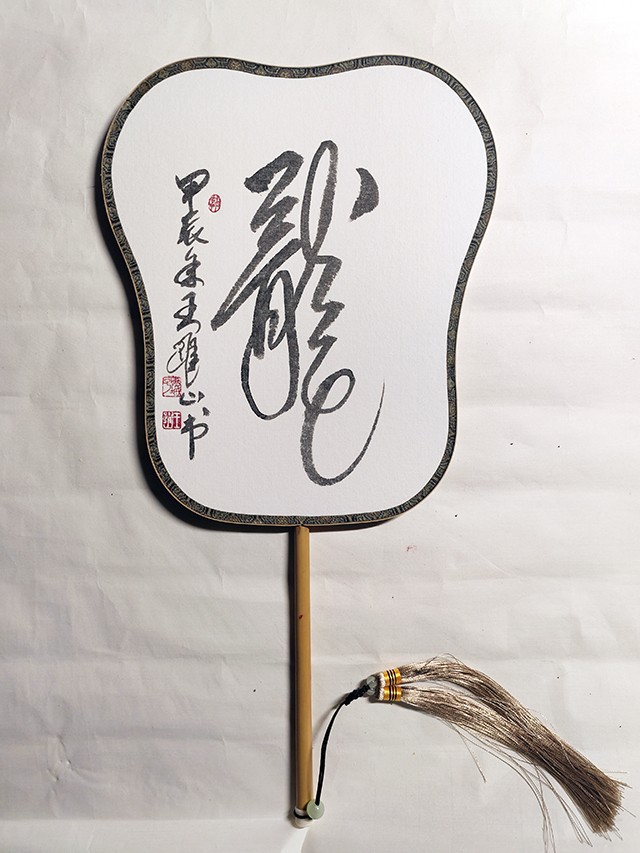 龍
甲辰年王躍山书